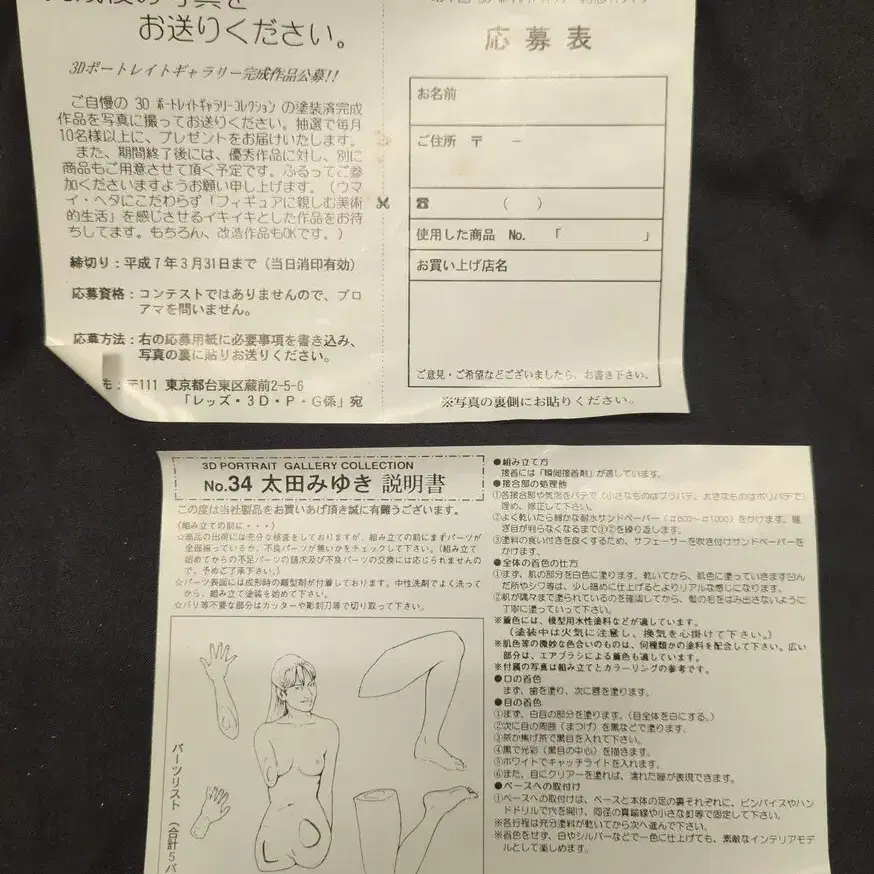 お送りください。
3Dポートレイトギャラリー完成作品公募!!
ご自慢の 3D ポートレイトギャラリーコレクション の塗装済完成
作品を写真に撮ってお送りください。抽選で毎月
10名様以上に、プレゼントをお届けいたします。
また、期間終了後には、優秀作品に対し、別に
商品もご用意させて頂く予定です。ふるってご参
加くださいますようお願い申し上げます。（ウマ
イ・ヘタにこだわらず「フィギュアに親しむ美術
的生活」を感じさせるイキイキとした作品をお待
ちしてます。もちろん、改造作品もOKです。）
締切り：平成7年3月31日まで（当日消印有効）
応募資格：コンテストではありませんので、プロ
アマを問いません。
応募方法：右の応募用紙に必要事項を書き込み、
写真の裏に貼りお送りください。
〒111 東京都台東区蔵前2-5-6
「レッズ・3D・P・G係」宛
応募表
お名前
ご住所 〒 －
☎ （ ）
使用した商品 No. 「 」
お買い上げ店名
ご意見・ご希望などございましたら、お書き下さい。
※写真の裏側にお貼りください。
3D PORTRAIT GALLERY COLLECTION
No.34 太田みゆき 説明書
この度は当社製品をお買いあげ頂き誠に有難うございます。
（組み立ての前に・・・）
☆商品の出荷には充分な検査をしておりますが、組み立ての前にまずパーツが
全部揃っているか、不良パーツが無いかをチェックして下さい。（組み立て
始めてからの不足パーツの請求及び不良パーツの交換には応じられませんの
で、予めご了承下さい。）
☆パーツ表面には成形時の離型剤が付着しております。中性洗剤でよく洗って
から、組み立て塗装を始めて下さい。
☆バリ等不要な部分はカッターや彫刻刀等で切り取って下さい。
パーツリスト（合計5パ
●組み立て方
接着には「瞬間接着剤」が適しています。
●接合部の処理他
①各接合部や気泡をパテで（小さなものはプラパテ、大きなものはポリパテで）
埋め、修正して下さい。
②よく乾いたら細かな耐水サンドペーパー（#600～#1000）をかけます。継
ぎ目が判らなくなるまで①②を繰り返します。
③塗料の食い付きを良くするため、サフェーサーを吹き付けサンドペーパーを
かけます。
●全体の着色の仕方
①まず、肌の部分を白色に塗ります。乾いてから、肌色に塗っていきます凹ん
だ所やシワ等は、少し暗めに仕上げるとよりリアルな感じになります。
②肌が隅々まで塗られているのを確認してから、髪の毛をはみ出さないように
丁寧に塗っていって下さい。
※着色には、模型用水性塗料などが適しています。
（塗装中は火気に注意し、換気を心掛けて下さい。）
※肌色等の微妙な色合いのものは、何種類かの塗料を配合して下さい。広い
部分は、エアブラシによる着色も適しています。
※付属の写真は組み立てとカラーリングの参考です。
●口の着色
まず、歯を塗り、次に唇を塗ります。
●目の着色
①まず、白目の部分を塗ります。（目全体を白にする。）
②次に目の周囲（まつげ）を黒などで塗ります。
③茶か焦げ茶で黒目を入れて下さい。
④黒で光彩（黒目の中心）を描きます。
⑤ホワイトでキャッチライトを入れます。
⑥また、目にクリアーを塗れば、濡れた瞳が表現できます。
●ベースへの取付け
①ベースへの取付けは、ベースと本体の足の裏それぞれに、ピンバイスやハン
ドドリルで穴を開け、同径の真鍮線や小さな釘等で固定して下さい。
※各行程は充分塗料が乾いてから次へ進んで下さい。
※着色をせず、白やシルバーなどで一色に仕上げても、素敵なインテリアモデ
ルとして楽しめます。